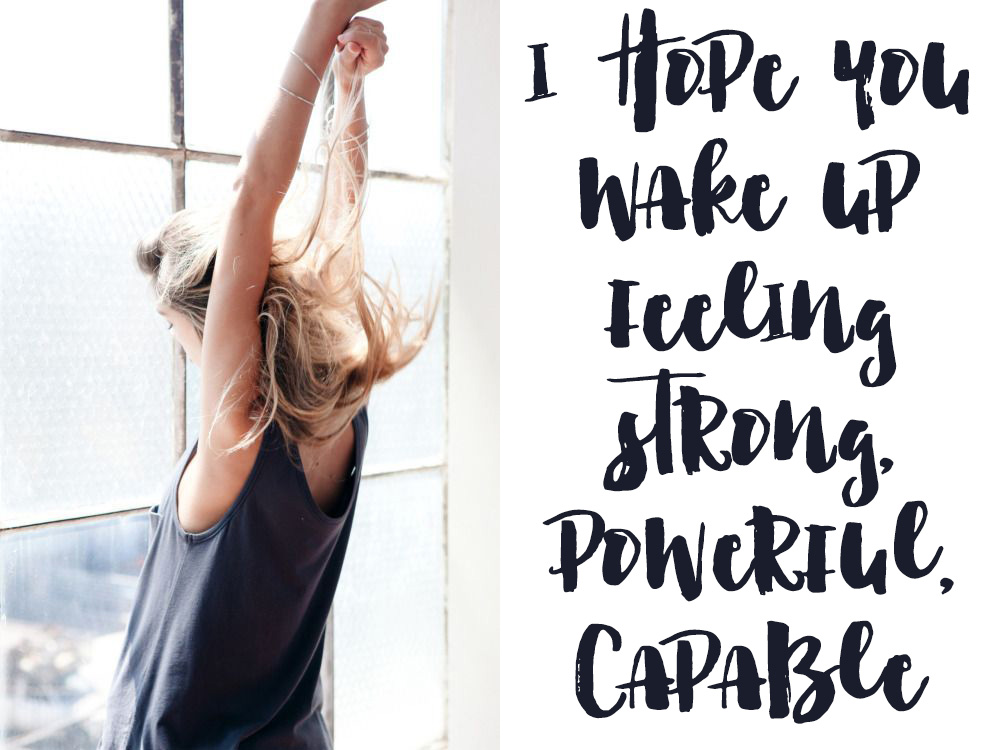 I HOPe you
WAke UP
Feeling
STRong,
POWeRFul,
CAPABle